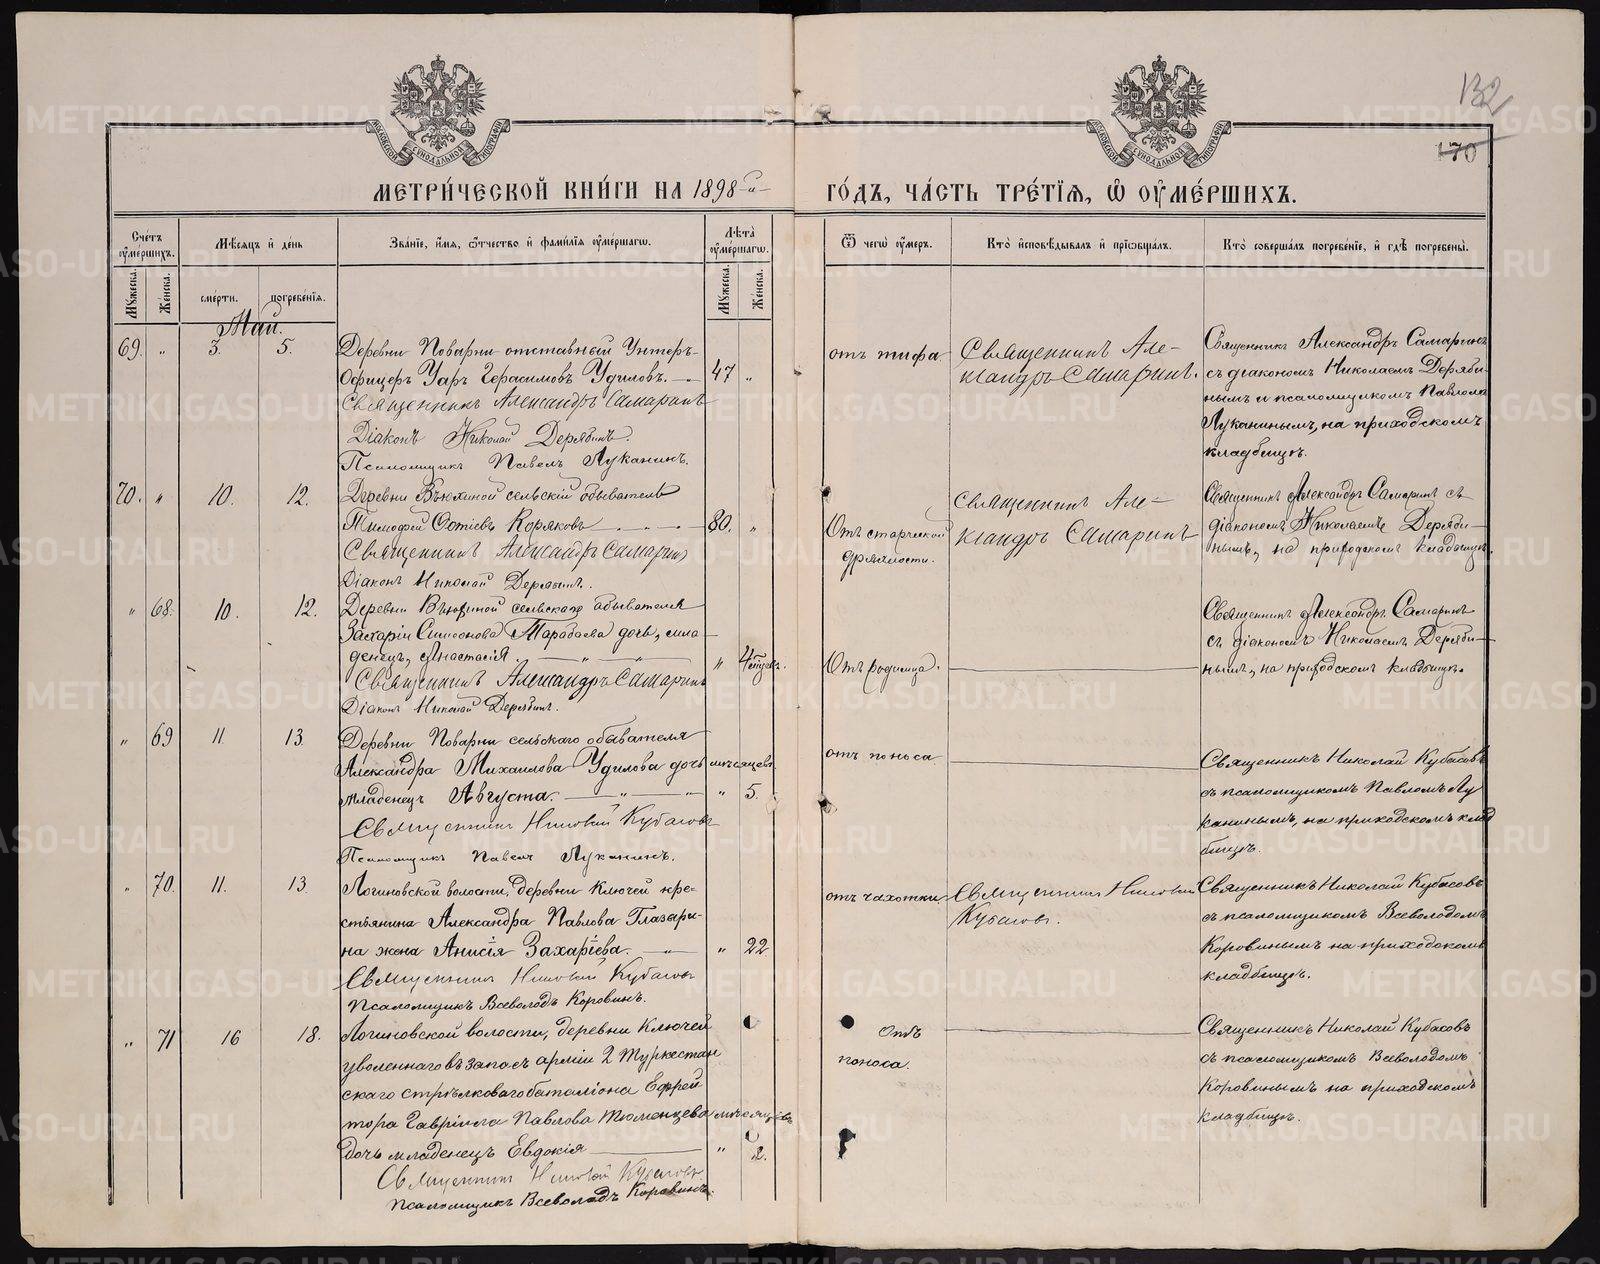 132
170
МОСКОВСКОЙ СѴНОДАЛЬНОЙ ТИПОГРАФІИ
МОСКОВСКОЙ СѴНОДАЛЬНОЙ ТИПОГРАФІИ
МЕТРИ́ЧЕСКОЙ КНИ́ГИ НА 1898-й
ГО́ДЪ, ЧА́СТЬ ТРЕ́ТІѦ, Ѽ ОУ҆МЕ́РШИХЪ.
Сче́тъ оу҆ме́ршихъ.
Мꙋ́жеска.
Же́нска.
Мѣ́сѧцъ и҆ де́нь
сме́рти.
погребе́нїѧ.
Зва́нїе, и҆́мѧ, ѻ҆́тчество и҆ фами́лїѧ оу҆ме́ршагѡ.
Лѣ̀та оу҆ме́ршагѡ.
Мꙋ́жеска.
Же́нска.
Ѿ чегѡ̀ оу҆́меръ.
Кто̀ и҆сповѣ́дывалъ и҆ прїѡбща́лъ.
Кто̀ соверша́лъ погребе́нїе, и҆ гдѣ̀ погребены̀.
Май.
69. " 3. 5.
Деревни Поварни отставный Унтеръ-
Офицеръ Уаръ Герасимовъ Удиловъ. 47 "
Священникъ Александръ Самаринъ
Діаконъ Николай Дерябинъ.
Псаломщикъ Павелъ Луканинъ.
отъ тифа
Священникъ Але-
ксандръ Самаринъ.
Священникъ Александръ Самаринъ
съ діакономъ Николаемъ Деряби-
нымъ и псаломщикомъ Павломъ
Луканинымъ, на приходскомъ
кладбищѣ.
70. " 10. 12.
Деревни Вьюхиной сельскій обыватель
Тимофей Фотіевъ Коряковъ 80. "
Священникъ Александръ Самаринъ
Діаконъ Николай Дерябинъ.
Отъ старческой
дряхлости.
Священникъ Але-
ксандръ Самаринъ
Священникъ Александръ Самаринъ съ
діакономъ Николаемъ Деряби-
нымъ, на приходскомъ кладбищѣ.
" 68. 10. 12.
Деревни Вьюхиной сельскаго обывателя
Захаріи Симеонова Тарабаева дочь, мла-
денецъ, Анастасія. " 4 мѣсяцевъ.
Священникъ Александръ Самаринъ
Діаконъ Николай Дерябинъ.
Отъ родимца.
Священникъ Александръ Самаринъ
съ діакономъ Николаемъ Деряби-
нымъ, на приходскомъ кладбищѣ.
" 69 11. 13.
Деревни Поварни сельскаго обывателя
Александра Михаилова Удилова дочь мѣсяцевъ
младенецъ Августа. " 5.
Священникъ Николай Кубасовъ
Псаломщикъ Павелъ Луканинъ.
отъ поноса
Священникъ Николай Кубасовъ
съ псаломщикомъ Павломъ Лу
канинымъ, на приходскомъ клад
бищѣ.
" 70. 11. 13.
Логиновской волости, деревни Ключей кре-
стьянина Александра Павлова Глазыри-
на жена Анисія Захаріева. " 22
Священникъ Николай Кубасовъ
Псаломщикъ Всеволодъ Коровинъ.
отъ чахотки
Священникъ Николай
Кубасовъ.
Священникъ Николай Кубасовъ
съ псаломщикомъ Всеволодомъ
Коровинымъ на приходскомъ
кладбищѣ.
" 71 16 18.
Логиновской волости, деревни Ключей
уволеннаго въ запасъ арміи 2 Туркестан
скаго стрѣлковаго баталіона Ефрей
тора Гавріила Павлова Тюменцева мѣсяцевъ
дочь младенецъ Евдокія " 2.
Священникъ Николай Кубасовъ
Псаломщикъ Всеволодъ Коровинъ.
Отъ
поноса.
Священникъ Николай Кубасовъ
съ псаломщикомъ Всеволодомъ
Коровинымъ на приходскомъ
кладбищѣ.
METRIKI.GASO-URAL.RU